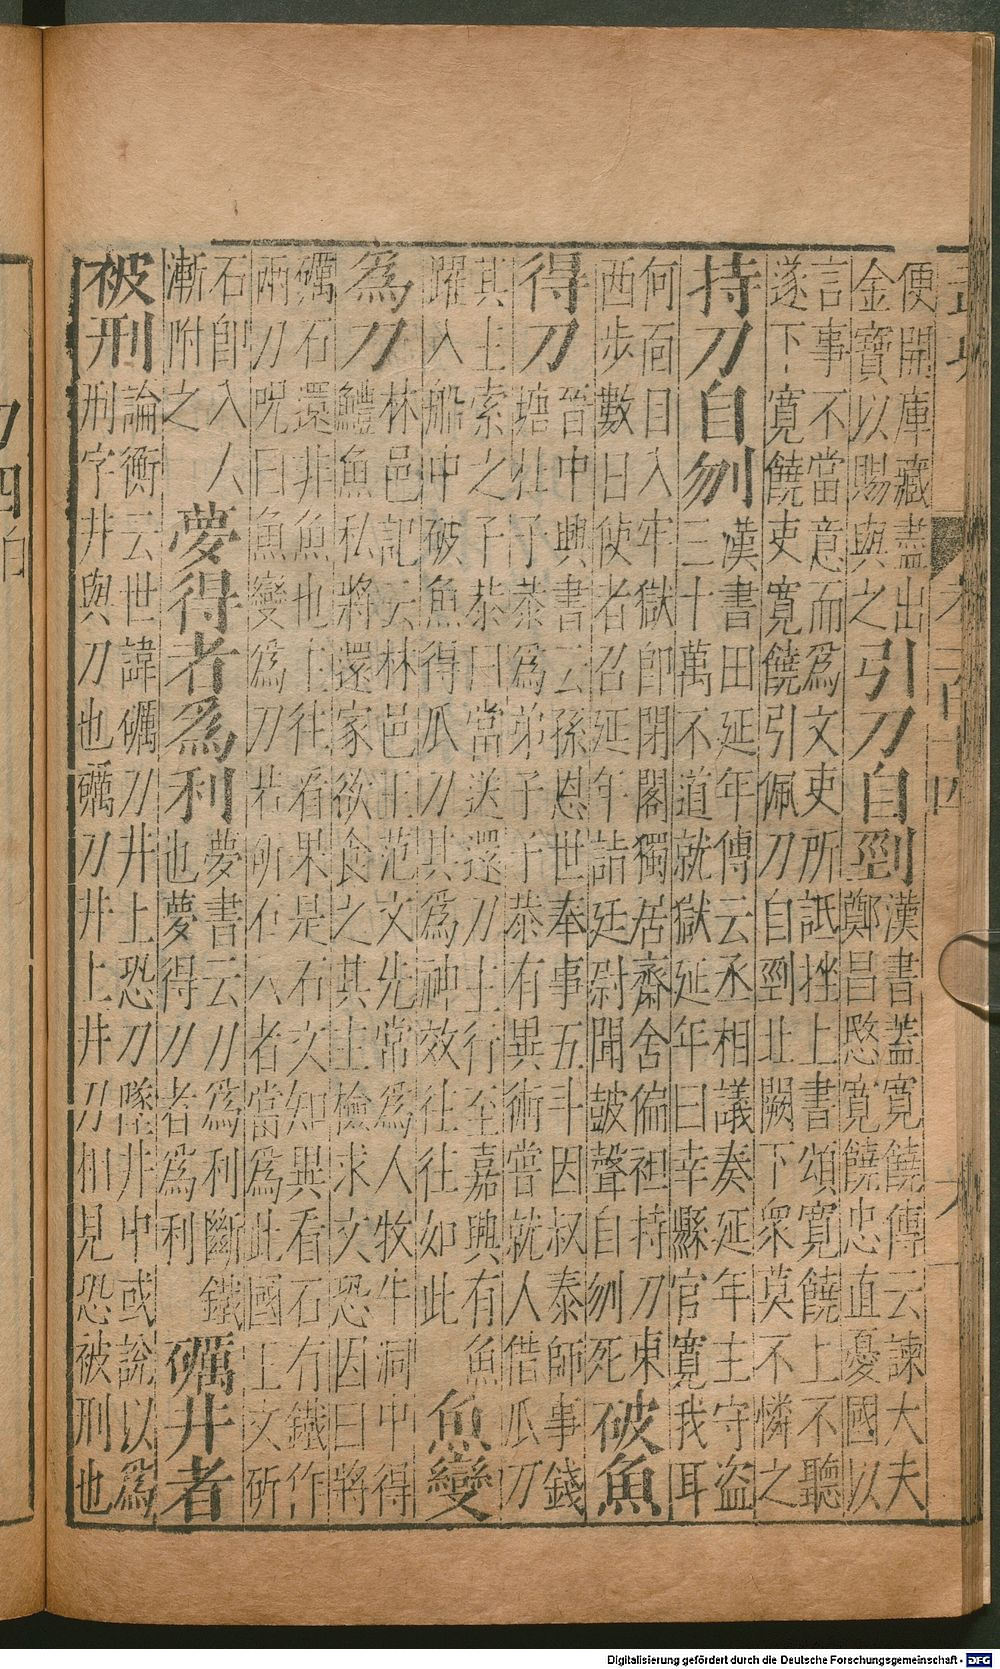 便開庫藏盡出
金寶以賜與之
引刀自剄
漢書蓋寬饒傳云諫大夫
鄭昌愍寬饒忠直憂國以
言事不當意而為文吏所詆挫上書頌寬饒上不聽
遂下寬饒吏寬饒引佩刀自剄北闕下衆莫不憐之
持刀自刎
漢書田延年傳云丞相議奏延年主守盜
三十萬不道就獄延年曰幸縣官寬我耳
何面目入牢獄卽閉閤獨居齋舍偏袒持刀東
西步數日使者召延年詣廷尉聞鼓聲自刎死
破魚
得刀
晉中興書云孫恩世奉事五斗因叔泰師事錢
塘杜子恭為弟子子恭有異術嘗就人借瓜刀
其主索之子恭曰當送還刀主行至嘉興有魚
躍入船中破魚得瓜刀其為神效往往如此
魚變
為刀
林邑記云林邑王范文先常為人牧牛洞中得
鱧魚私將還家欲食之其主檢求文恐因曰將
礪石還非魚也主往看果是石文知異看石有鐵作
兩刀呪曰魚變為刀若斫石入者當為此國王文斫
石卽入人
漸附之
夢得者為利
夢書云刀為利斷鐵
也夢得刀者為利
礪井者
被刑
論衡云世諱礪刀井上恐刀墜井中或說以為
刑字井與刀也礪刀井上井刀相見恐被刑也
Digitalisierung gefördert durch die Deutsche Forschungsgemeinschaft - DFG